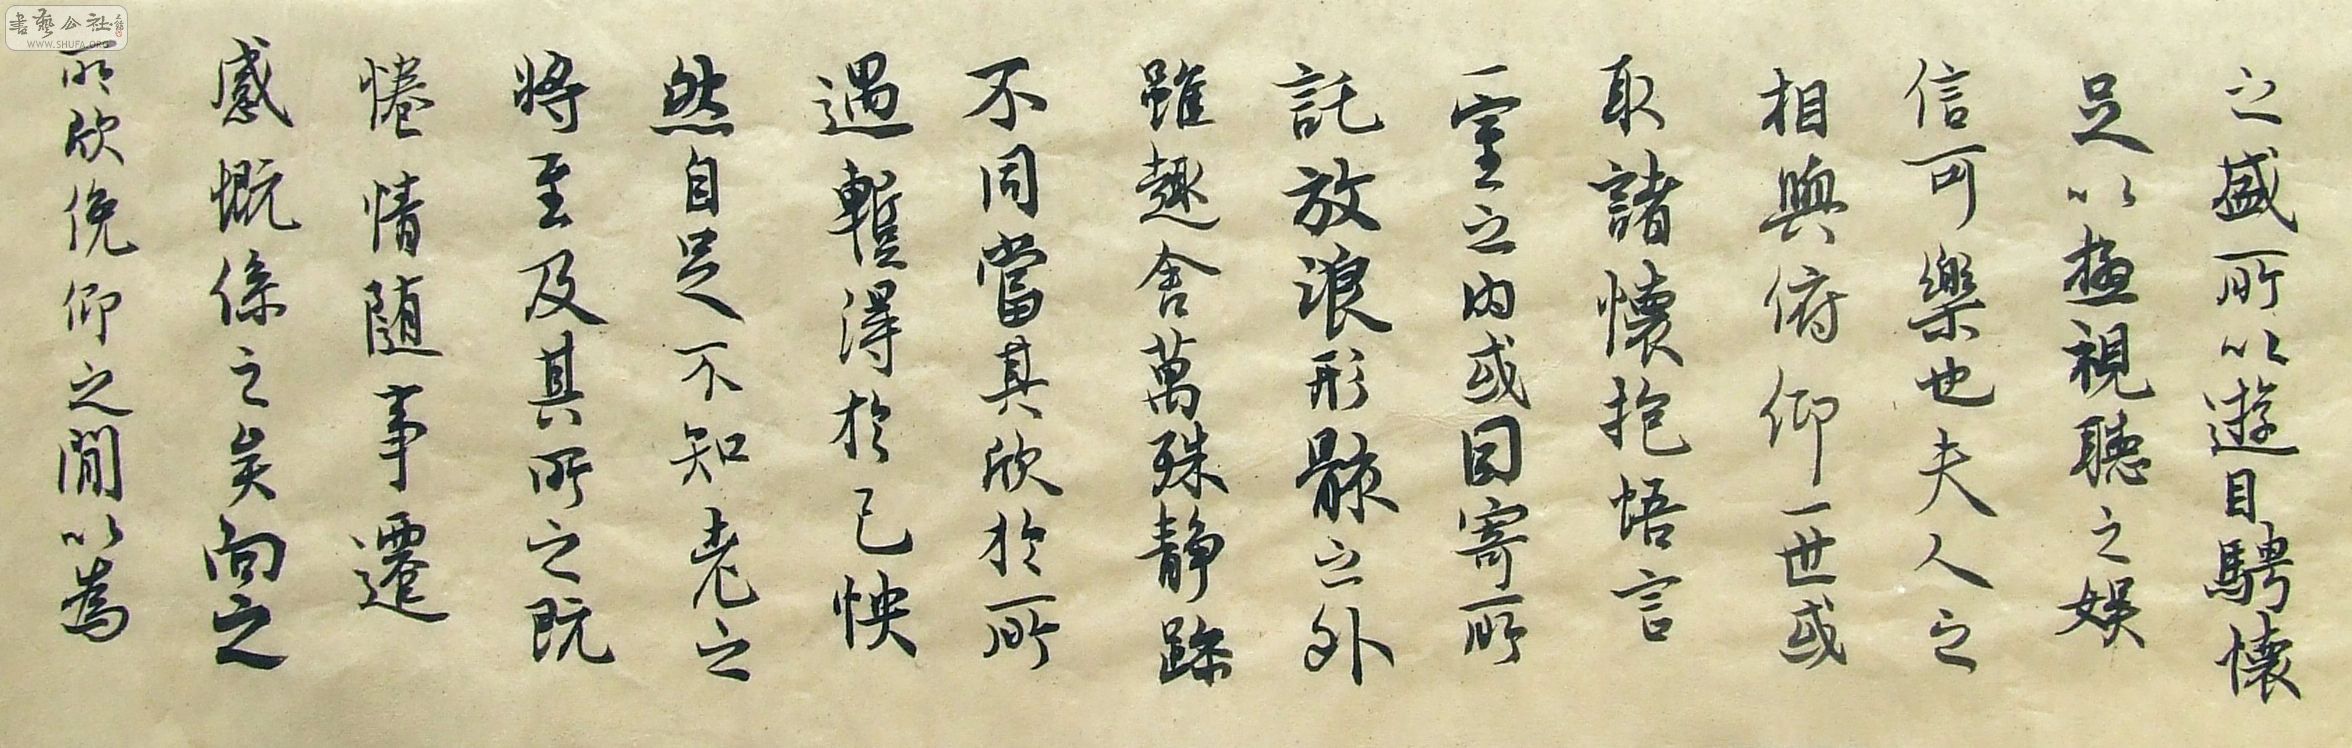 之盛所以遊目騁懷
足以極視聽之娛
信可樂也夫人之
相與俯仰一世或
取諸懷抱悟言
一室之內或因寄所
託放浪形骸之外
雖趣舍萬殊靜躁
不同當其欣於所
遇暫得於己怏
然自足不知老之
將至及其所之既
惓情隨事遷
感慨係之矣向之
所欣俛仰之閒以為
書藝公社
WWW.SHUFA.ORG